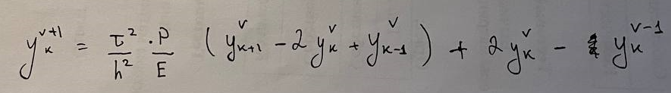 y_k^{v+1} = \frac{τ^2}{h^2} · \frac{P}{E} (y_{k+1}^v - 2y_k^v + y_{k-1}^v) + 2y_k^v - y_k^{v-1}